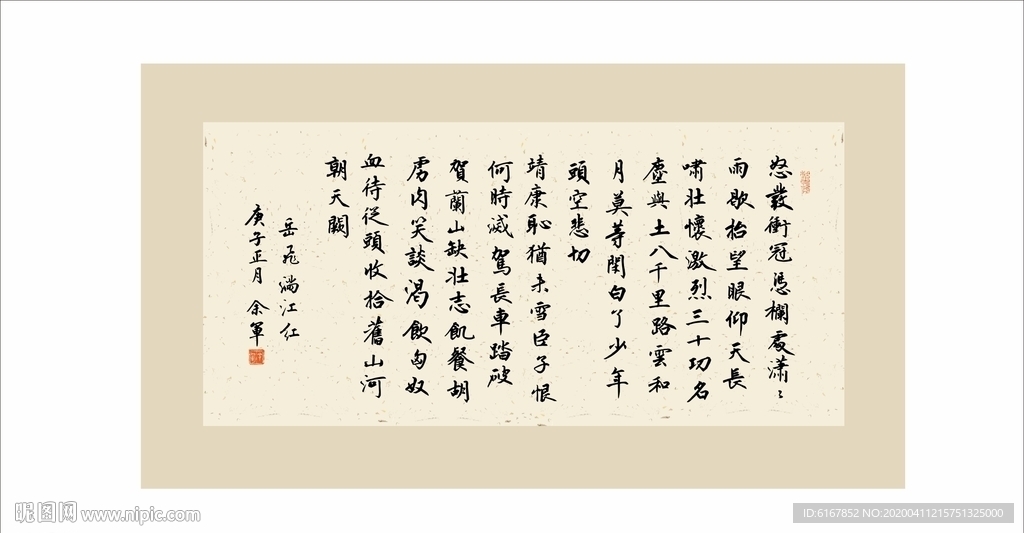 怒發衝冠憑欄處瀟〻
雨歇抬望眼仰天長
嘯壯懷激烈三十功名
塵與土八千里路雲和
月莫等閑白了少年
頭空悲切
靖康恥猶未雪臣子恨
何時滅駕長車踏破
賀蘭山缺壯志飢餐胡
虜肉笑談渴飲匈奴
血待從頭收拾舊山河
朝天闕
岳飛滿江红
庚子正月 余軍
昵图网 www.nipic.com
ID:6167852 NO:20200411215751325000